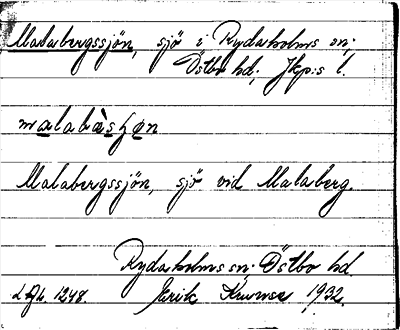 Malabergssjön, sjö i Rydaholms sn;
Östbo hd; Jkp:s l.
Malabergssjön, sjö vid Malaberg.
Rydaholms sn; Östbo hd.
1248. Erik 1932.